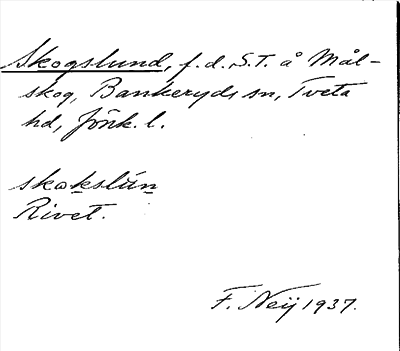 Skogslund, f.d. S.T. å Mål-
skog, Bankeryds sn, Tveta
hd, Jönk. l.
skokslún
Rivet.
F. Neij 1937.